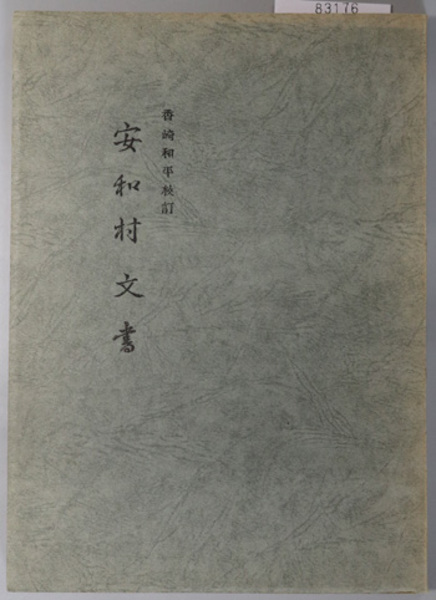 83176
香崎和平校訂
安和村文書